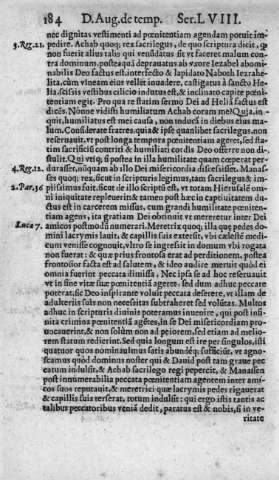 184 D. Aug. de temp. Ser. LVIII.
nec dignitas vestimenti ad pœnitentiam agendam potuit im-
3. Reg. 21. pedire. Achab quoq; rex sacrilegus, de quo scriptura dicit, q
non fuerit alius talis qui venūdatus sit vt faceret malum con-
tra dominum, posteaquā depravatus ab vxore Iezabel abomi-
nabilis Deo factus est, interfecto & lapidato Naboth Iezrahe-
lita, cùm vineam eius vellet invadere, castigatus à sancto He-
lia, scissis vestibus cilicio indutus est, & inclinato capite pœni-
tentiam egit. Pro qua re statim sermo Dei ad Heliā factus est
dicēs. Nōnne vidisti humiliatum Achab coram me? Quia, in-
quit, humiliatus est mei causa, non inducā in diebus eius ma-
lum. Considerate fratres, quia & ipse quanlibet sacrilegus, non
reservauit, vt post longa tempora pœnitentiam ageret, sed sta-
tim sacrificiū contriti & humiliati cordis Deo offerre non di-
stulit. Qui vtiq; si postea in illa humilitate quam cœperat per-
4. Reg. 12. durasset, nūquam ab illo Dei misericordia discessisset. Manas-
ses quoq; rex, sicut in scripturis legimus, tam sacrilegus & im-
2. Par. 36 piissimus fuit. sicut de illo scriptū est, vt totam Hierusalē om-
ni iniquitate repleuerit & tamen post hæc in captiuitatem du-
ctus est in carcerem missus, cum grandi humilitate pœniten-
tiam agens, ita gratiam Dei obtinuit vt mereretur inter Dei
Luca 7. amicos postmodū numerari. Meretrix quoq;, illa quę pedes do-
mini lacrymis lauit, & capillis suis extersit, vbi cælestē medi-
cum venisse cognouit, vltro se ingressit in domum vbi rogata
non fuerat: & quæ prius frontosa erat ad perditionem, postea
frontosior facta est ad salutem, & ideo audire meruit quòd ei
omnia fuerint peccata dimissa. Nec ipsa se ad hoc reseruauit
vt in fine vitæ suæ pœnitentiā ageret. sed dum adhuc peccare
poterat, sic Deo inspirante voluit peccata deserere, vt illam de
adulteriis suis non necessitas subtraheret sed volūtas. Multos
adhuc in scripturis diuinis poteramus inuenire, qui post infi-
nita crimina pœnitentiā agētes, in se Dei misericordiam pro-
uocauerint, & non solùm non ad peiorem, sed etiam ad melio-
rem statum redierint. Sed quia longum est ire per singulos, isti
quatuor quos nominauimus satis abundéq; sufficiūt, vt agnos-
camus quòd dominus noster qui & Dauid post tam graue pec-
catum indulsit, & Achab sacrilego regi pepercit, & Manassen
post innumerabilia peccata pœnitentiam agentem inter ami-
cos suos reputauit, & meretrici quæ lacrymis pedes rigauerat
& capillis suis terserat, totum indulsit: qui ergo istis tantis ac
talibus peccatoribus veniā dedit, paratus est & nobis, si in ve-
ritate